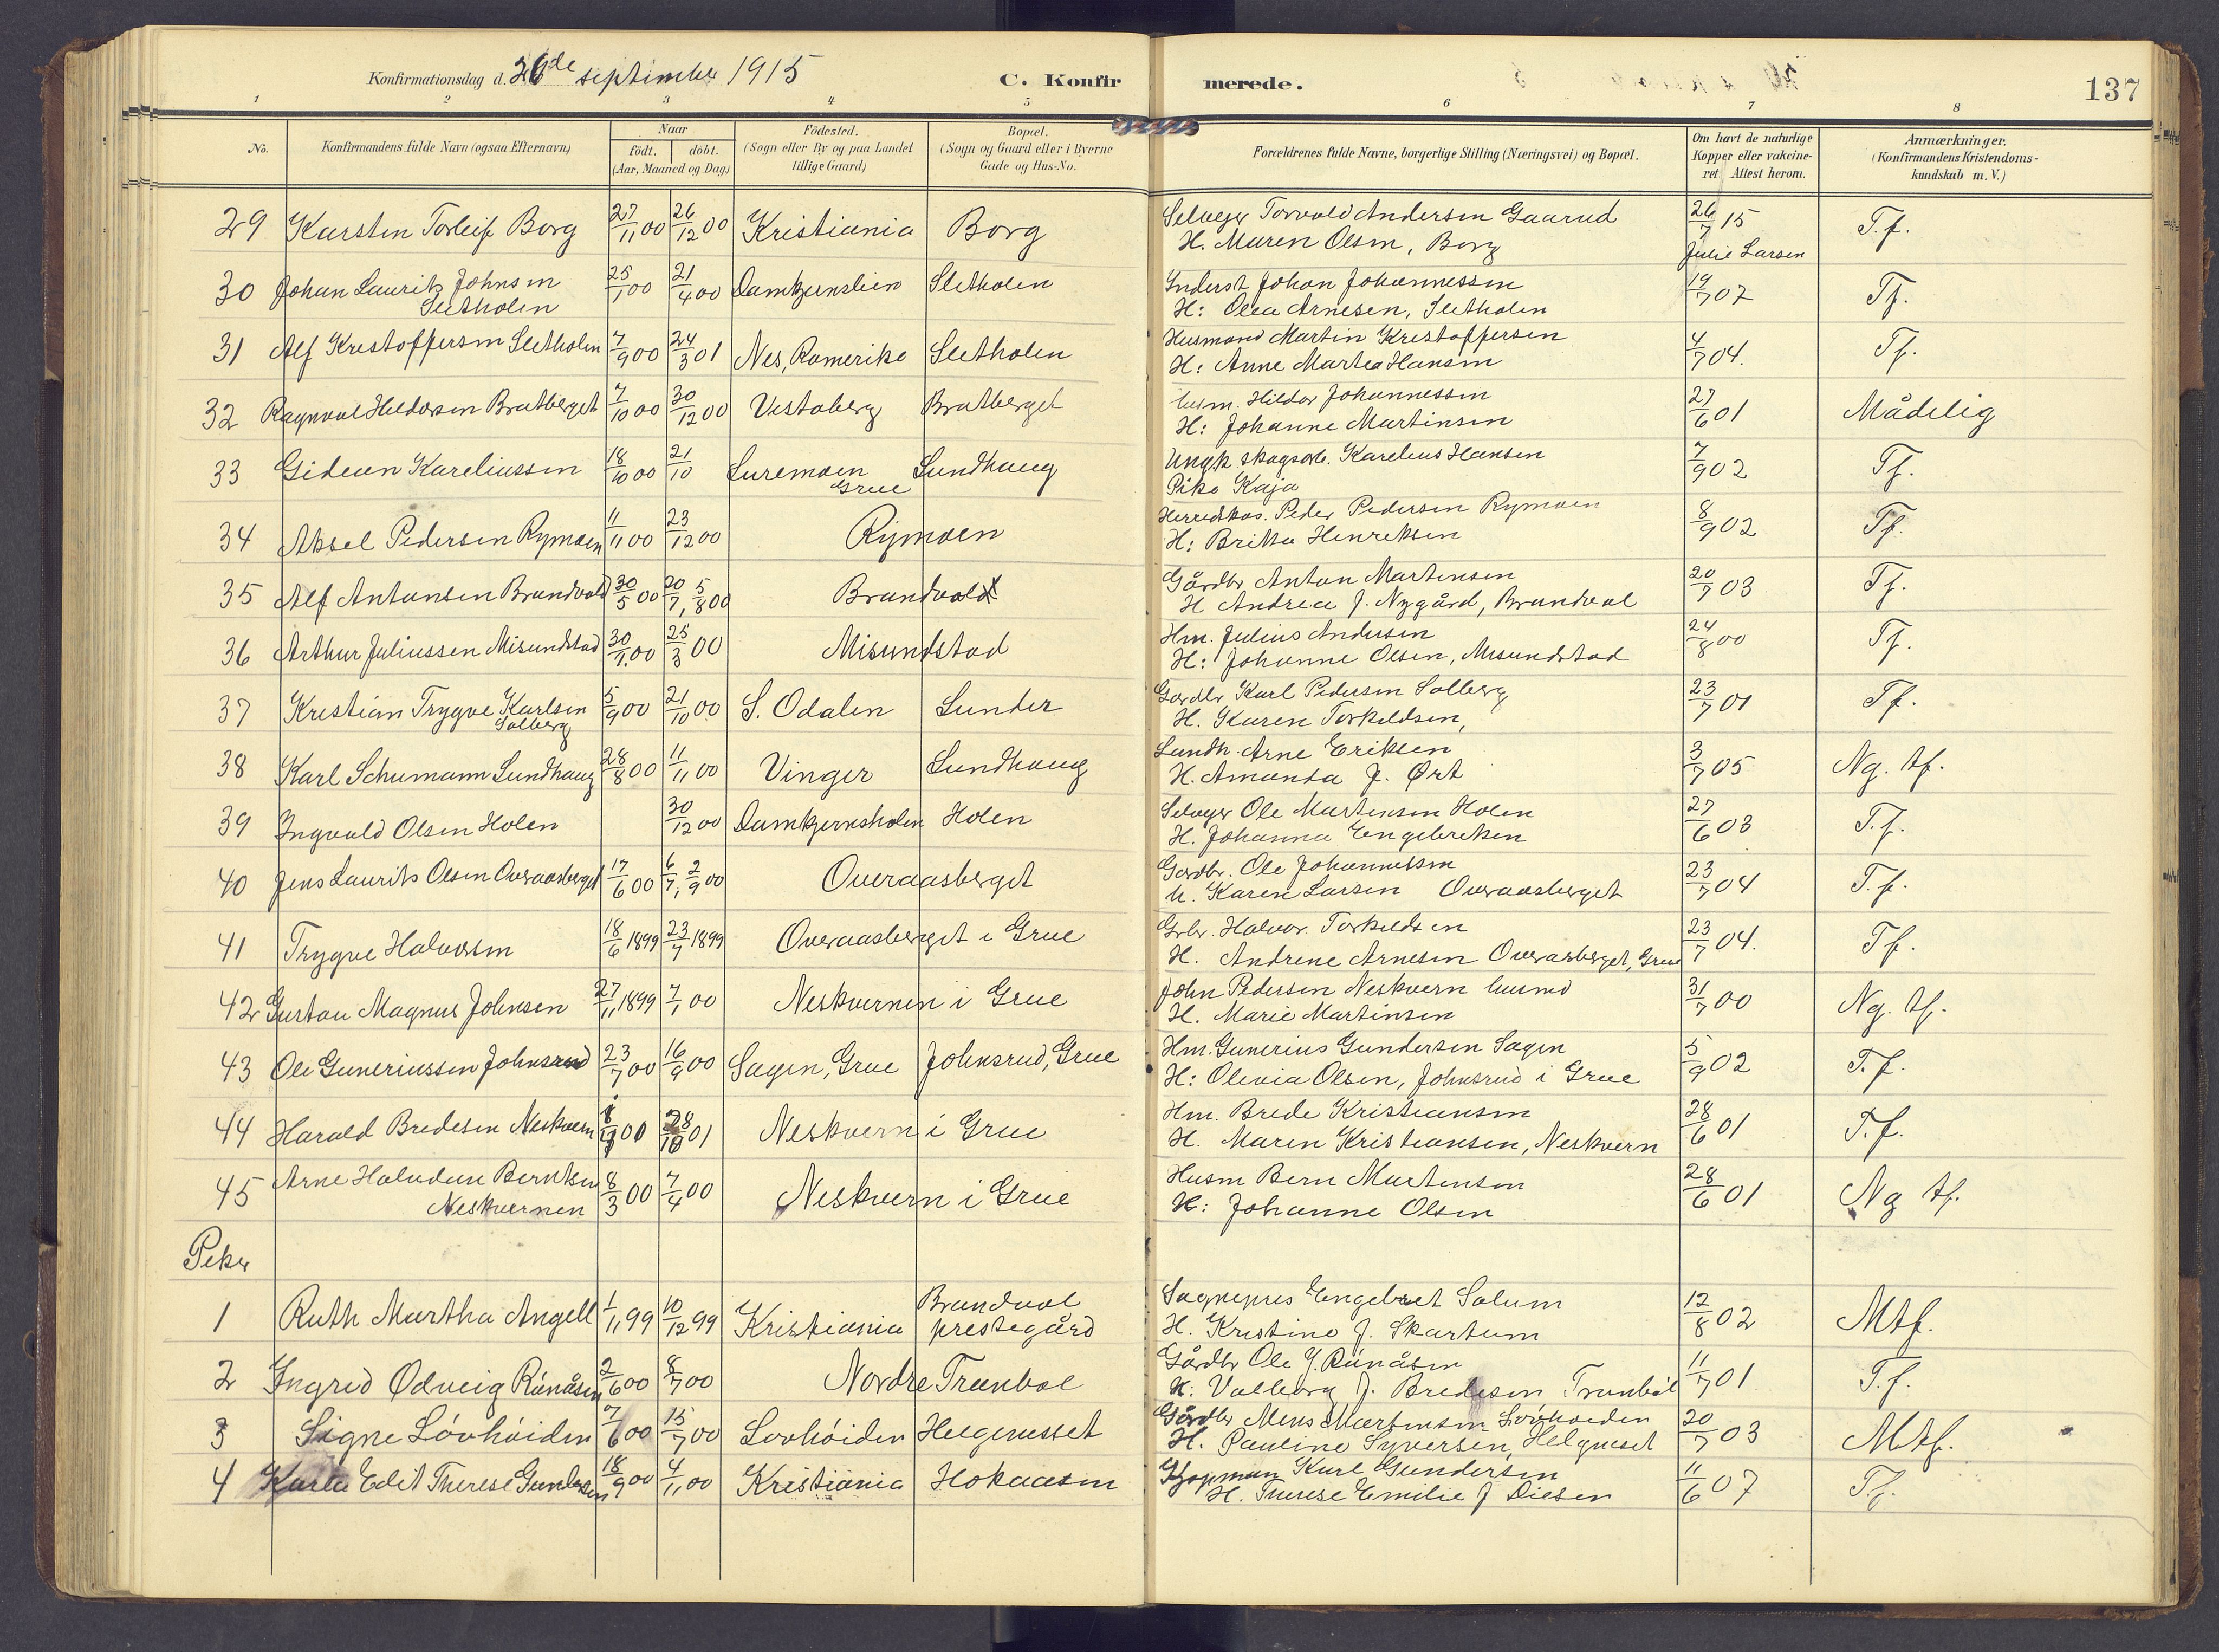 Konfirmationsdag d. 26de september 1915 C. Konfirmerede. 137
1 2 3 4 5 6 7 8
No. Konfirmandens fulde Navn (ogsaa Efternavn) Naar født. døbt. (Aar, Maaned og Dag) Födested. (Sogn eller By og paa Landet tillige Gaard) Bopæl. (Sogn og Gaard eller i Byerne Gade og Hus-No. Forældrenes fulde Navne, borgerlige Stilling (Næringsvei) og Bopæl. Om havt de naturlige Kopper eller vakcineret. Attest herom. Anmærkninger. (Konfirmandens Kristendomskundskab m. V.)
29 Karsten Torleif Borg 27/11 00 26/12 00 Kristiania Borg Selveger Torvald Andersen Gaarud 26/7 15 T.f.
H. Maren Olsen, Borg Julie Larsen
30 Johan Laurits Johnsen 25/1 00 21/4 00 Damtjernslien Sletholen Inderst Johan Johannessen 19/7 07 Tf.
Sletholen H: Olea Arnesen, Sletholen
31 Alf Kristoffersen Sletholen 7/9 00 24/3 01 Nes, Romerike Sletholen Husmand Martin Kristoffersen 4/7 04. Tf.
H: Anne Martea Hansen
32 Ragnval Hildorsen Bratberget 7/10 00 30/12 00 Vestaberg Bratberget husm. Hildor Johannessen 27/6 01 Mådelig
H: Johanne Martinsen
33 Gideon Kareliussen 18/10 00 21/10 Luremoen Grue Sundhaug Ungk skogsarb. Karelius Hansen 7/9 02 Tf.
Pike Kaja
34 Aksel Pedersen Rymoen 11/11 00 23/12 00 Rymoen Herredskas. Peder Pedersen Rymoen 8/9 02 Tf.
H: Britha Henriksen
35 Alf Antonsen Brandvold 30/5 00 20/7, 5/8 00 Brandvold Gårdbr Anton Martinsen 20/7 03 Tf.
H Andrea J. Nygård, Brandval
36 Arthur Juliussen Misundstad 30/1 00 25/3 00 Misundstad Hm. Julius Andersen 24/8 00 Tf.
H: Johanne Olsen, Misundstad
37 Kristian Trygve Karlsen 5/9 00 21/10 00 S. Odalen Lunder Gardbr Karl Pedersen Solberg 23/7 01 Tf.
Solberg H. Karen Torkildsen,
38 Karl Schumann Sundhaug 28/8 00 11/11 00 Vinger Sundhaug Landh. Arne Eriksen 3/7 05 Ng. tf.
H. Amanda J. Ørt
39 Ingvald Olsen Holen 30/12 00 Damtjernsholen Holen Selveger Ole Martinsen Holen 27/6 03 T.f.
H. Johanna Engebretsen
40 Jens Laurits Olsen Overaasberget 17/6 00 6/7, 2/9 00 Overaasberget Gardbr. Ole Johannessen 23/7 04 T.f.
h. Karen Larsen Overaasberget
41 Trygve Halvorsen 18/6 1899 23/7 1899 Overaasberget i Grue Grbr. Halvor Torkildsen 23/7 04. Tf.
H. Andrine Arnesen Overaasberget, Grue
42 Gustav Magnus Johnsen 27/11 1899 7/1 00 Neskvernen i Grue John Pedersen Neskvern husmd 31/7 00 Ng. tf.
H. Marie Martinsen
43 Ole Guneriussen Johnsrud 23/7 00 16/9 00 Sagen, Grue Johnsrud, Grue Hm. Gunerius Gundersen Sagen 5/9 02 T.f.
H: Olivia Olsen, Johnsrud i Grue
44 Harald Bredesen Neskvern Neskvern i Grue Hm. Brede Kristiansen 28/6 01 T.f.
H. Maren Kristiansen, Neskvern
45 Arne Halvdan Berntsen 8/3 00 7/4 00 Neskvern i Grue Husm Bern Martinsen 28/6 01 Ng tf.
Neskvernen H: Johanne Olsen
Piker
1 Ruth Martha Angell 1/11 99 10/12 99 Kristiania Brandval prestegård Sognepres Engebret Solum 12/8 02 Mtf.
H. Kristine J. Skartum
2 Ingrid Ødveig Rúnåsen 2/6 00 8/7 00 Nordre Tranbøl Gårdbr Ole J. Rúnåsen 11/7 01 T.f.
H. Valborg J. Bredesen Tranbøl
3 Signe Lövhöiden 7/6 00 15/7 00 Lovhöiden Helgenesset Gårdbr Mens Martinsen Lövhøiden 20/7 03 Mtf.
H. Pauline Syversen, Helgneset
4 Karla Edit Therese Gundersen 18/9 00 4/11 00 Kristiania Hokaasen Kjøpman Karl Gundersen 11/6 07 T.f.
H. Therese Emilie J Diesen